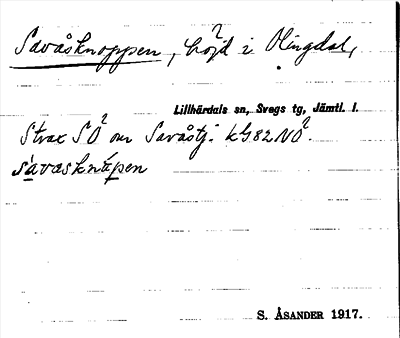 Savåsknoppen, höjd i Olingdal,
Lillhärdals sn, Svegs tg, Jämtl. l.
Strax SO om Savåstj. kG82NO.
sávasknä́pen
S. ÅSANDER 1917.